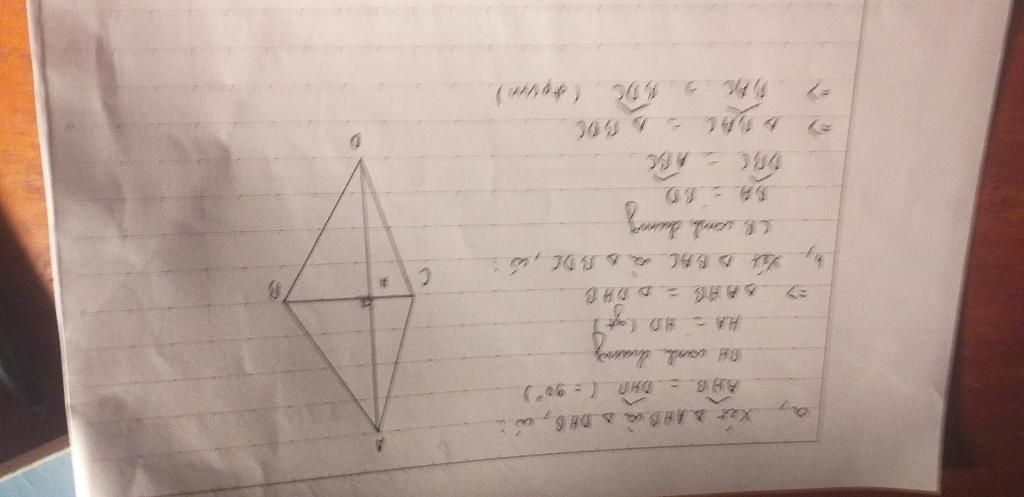 a, Xét Δ AHB và Δ DHB, có:
AHB = DHB (= 90°)
BH cạnh chung
HA = HD (gt)
=> Δ AHB = Δ DHB
b, Xét Δ BAC và Δ BDC, có:
CB cạnh chung
BA = BD
DBC = ABC
=> Δ BAC = Δ BDC
=> BAC = BDC (đpcm)
A
B
H
C
D